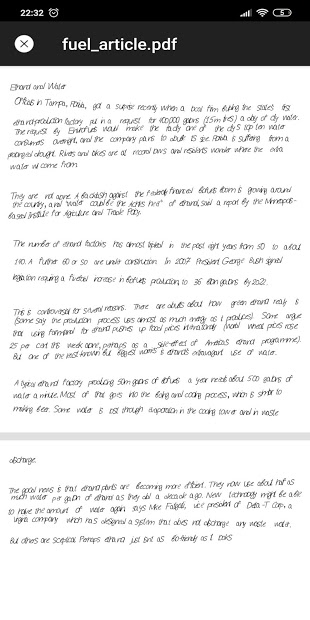 22:32
5
fuel_article.pdf
Ethanol and Water
Officials in Tampa, Florida, got a surprise recently when a local firm building the state's first
ethanol-production factory put in a request for 400,000 gallons (1.5m litres) a day of city water.
The request by Envirofuels would make the facility one of the city's top ten water
consumers overnight, and the company plans to double its size. Florida is suffering from a
prolonged drought. Rivers and lakes are at record lows and residents wonder where the extra
water will come from.
They are not alone. A backlash against the federally financed biofuels boom is growing around
the country, and "water could be the Achilles heel" of ethanol, said a report by the Minneapolis-
based Institute for Agriculture and Trade Policy.
The number of ethanol factories has almost tripled in the past eight years from 50 to about
140. A further 60 or so are under construction. In 2007 President George Bush signed
legislation requiring a fivefold increase in biofuels production, to 36 billion gallons by 2022.
This is controversial for several reasons. There are doubts about how green ethanol really is
(some say the production process uses almost as much energy as it produces). Some argue
that using farmland for ethanol pushes up food prices internationally (world wheat prices rose
25 per cent this week alone, perhaps as a side-effect of America's ethanol programme).
But one of the least known but biggest worries is ethanol's extravagant use of water.
A typical ethanol factory producing 50m gallons of biofuels a year needs about 500 gallons of
water a minute. Most of that goes into the boiling and cooling process, which is similar to
making beer. Some water is lost through evaporation in the cooling tower and in waste
discharge.
The good news is that ethanol plants are becoming more efficient. They now use about half as
much water per gallon of ethanol as they did a decade ago. New technology might be able
to halve the amount of water again, says Mike Fatigati, vice president of Delta-T Corp, a
Virginia company which has designed a system that does not discharge any waste water.
But others are sceptical. Perhaps ethanol just isn't as bio-friendly as it looks